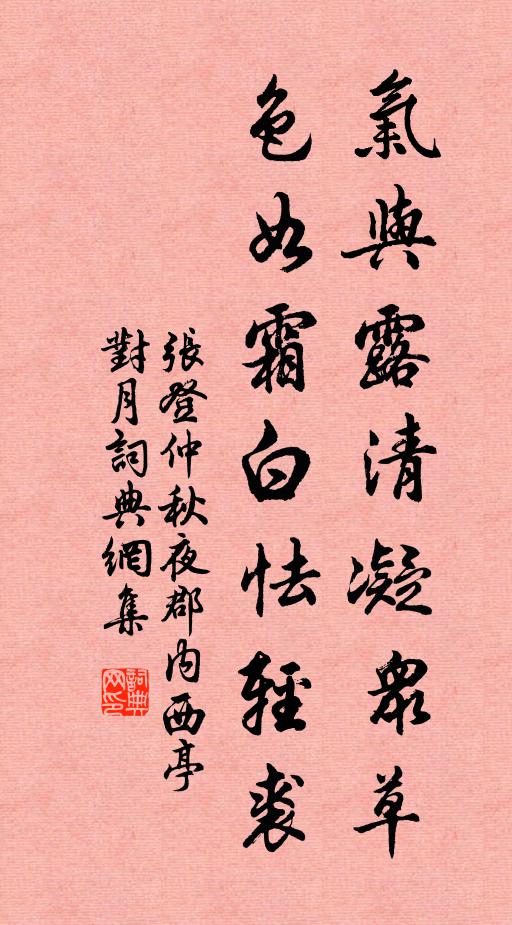 氣與露清凝眾草
色如霜白怯輕裘
張登仲秋夜郡內西亭
對月詞典網集
詞典
网印